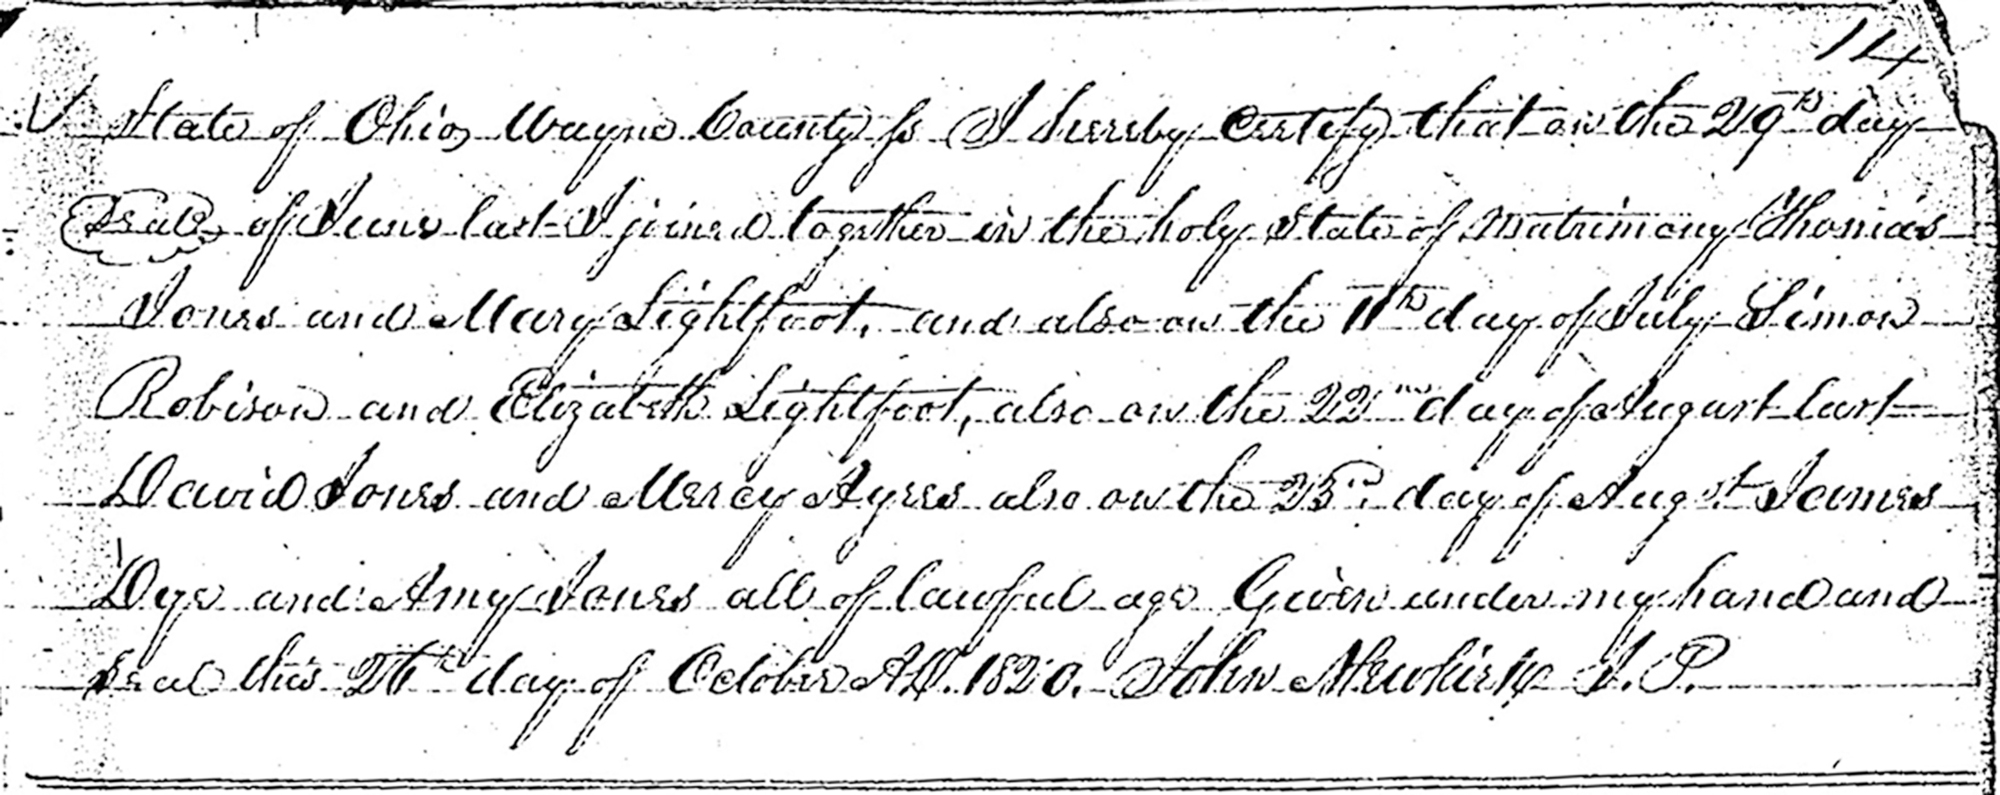 114
State of Ohio, Wayne County ss I hereby Certify that on the 29th day
Seal of June last I joined together in the holy State of Matrimony Thomas
Jones and Mary Lightfoot, and also on the 11th day of July Simon
Robison and Elizabeth Lightfoot, also on the 22nd day of August last
David Jones and Mercy Ayres also on the day of Augst James
Dye and Amy Jones all of lawful age Given under my hand and
Seal this day of October A.D. 1820. John Newkirk J.P.